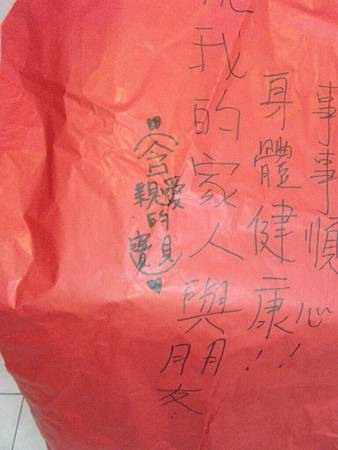 事事順心
身體健康!!
我的家人與朋友.
(含親愛的寶貝)